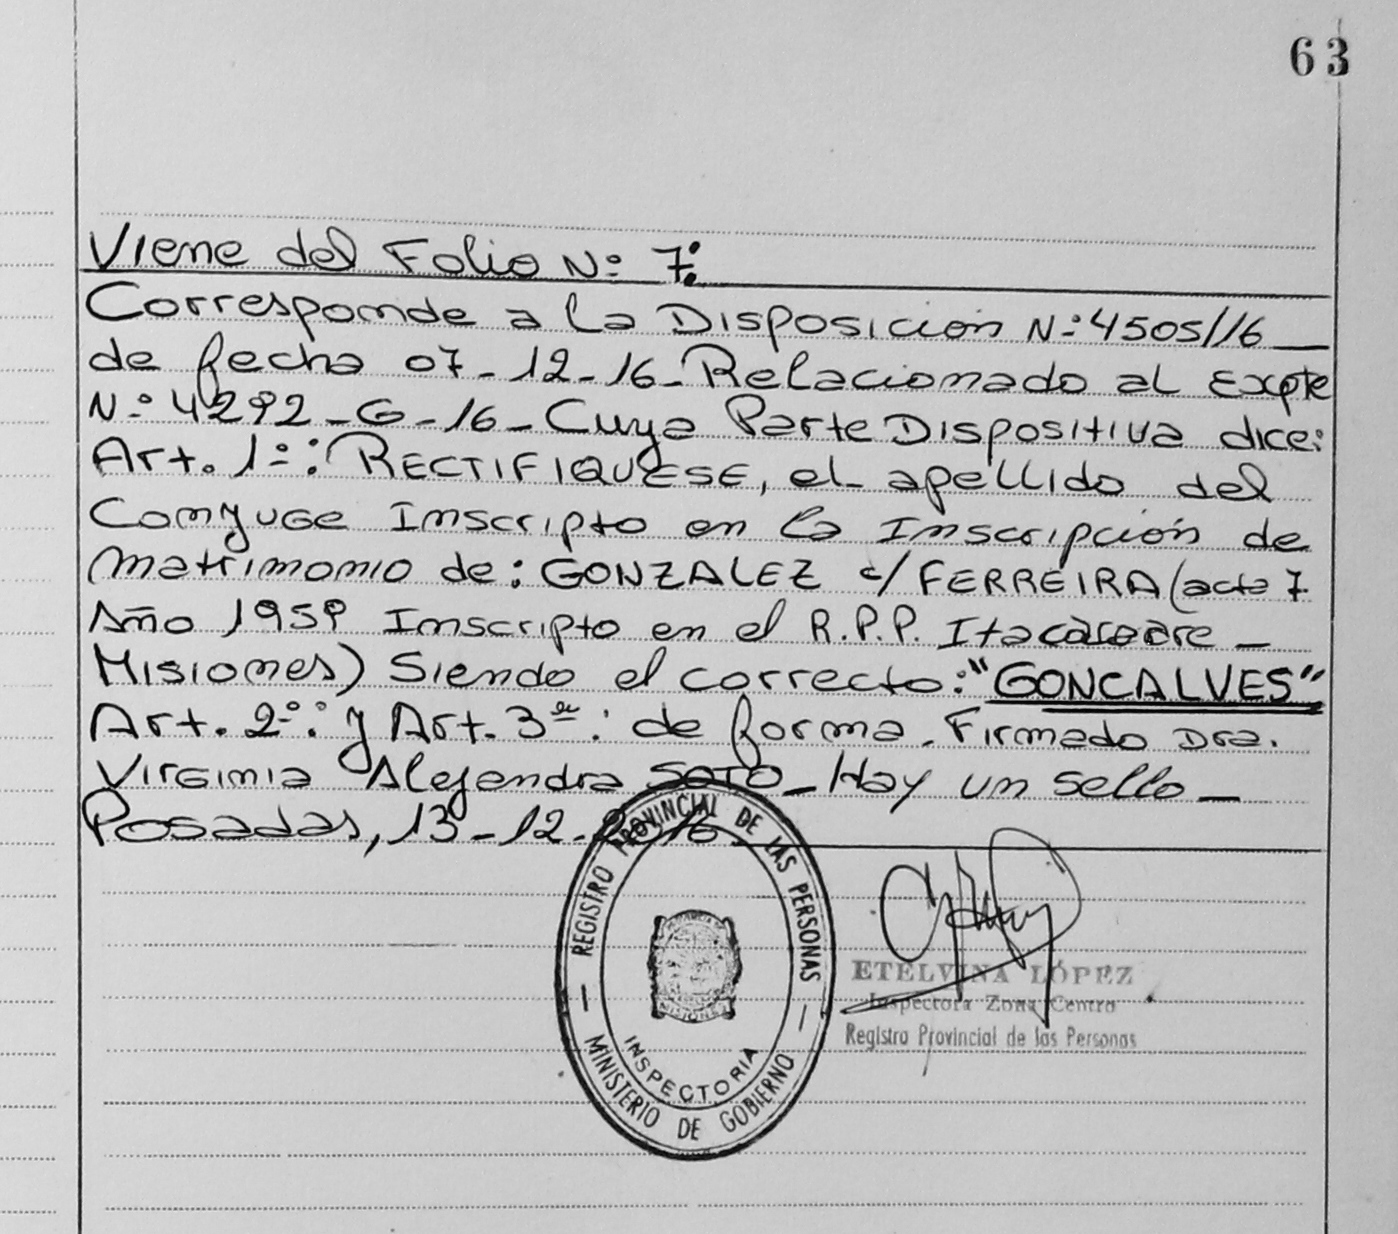 63
Viene del Folio Nº 7:
Corresponde a la Disposición Nº 4505/16
de fecha 07-12-16- Relacionado al Expte
Nº 4292-G-16- Cuya Parte Dispositiva dice:
Art. 1º: RECTIFIQUESE, el apellido del
Conyuge Inscripto en la Inscripción de
Matrimonio de: GONZALEZ c/ FERREIRA (acta 7
Año 1959 Inscripto en el R.P.P. Itacaruare -
Misiones) Siendo el correcto: "GONCALVES"
Art. 2º: y Art. 3º: de forma. Firmado Dra.
Virginia Alejandra SOTO- Hay un sello-
Posadas, 13-12-2016
REGISTRO PROVINCIAL DE LAS PERSONAS
MISIONES
INSPECTORIA
MINISTERIO DE GOBIERNO
ETELVINA LÓPEZ
Inspectora Zona Centro
Registro Provincial de las Personas